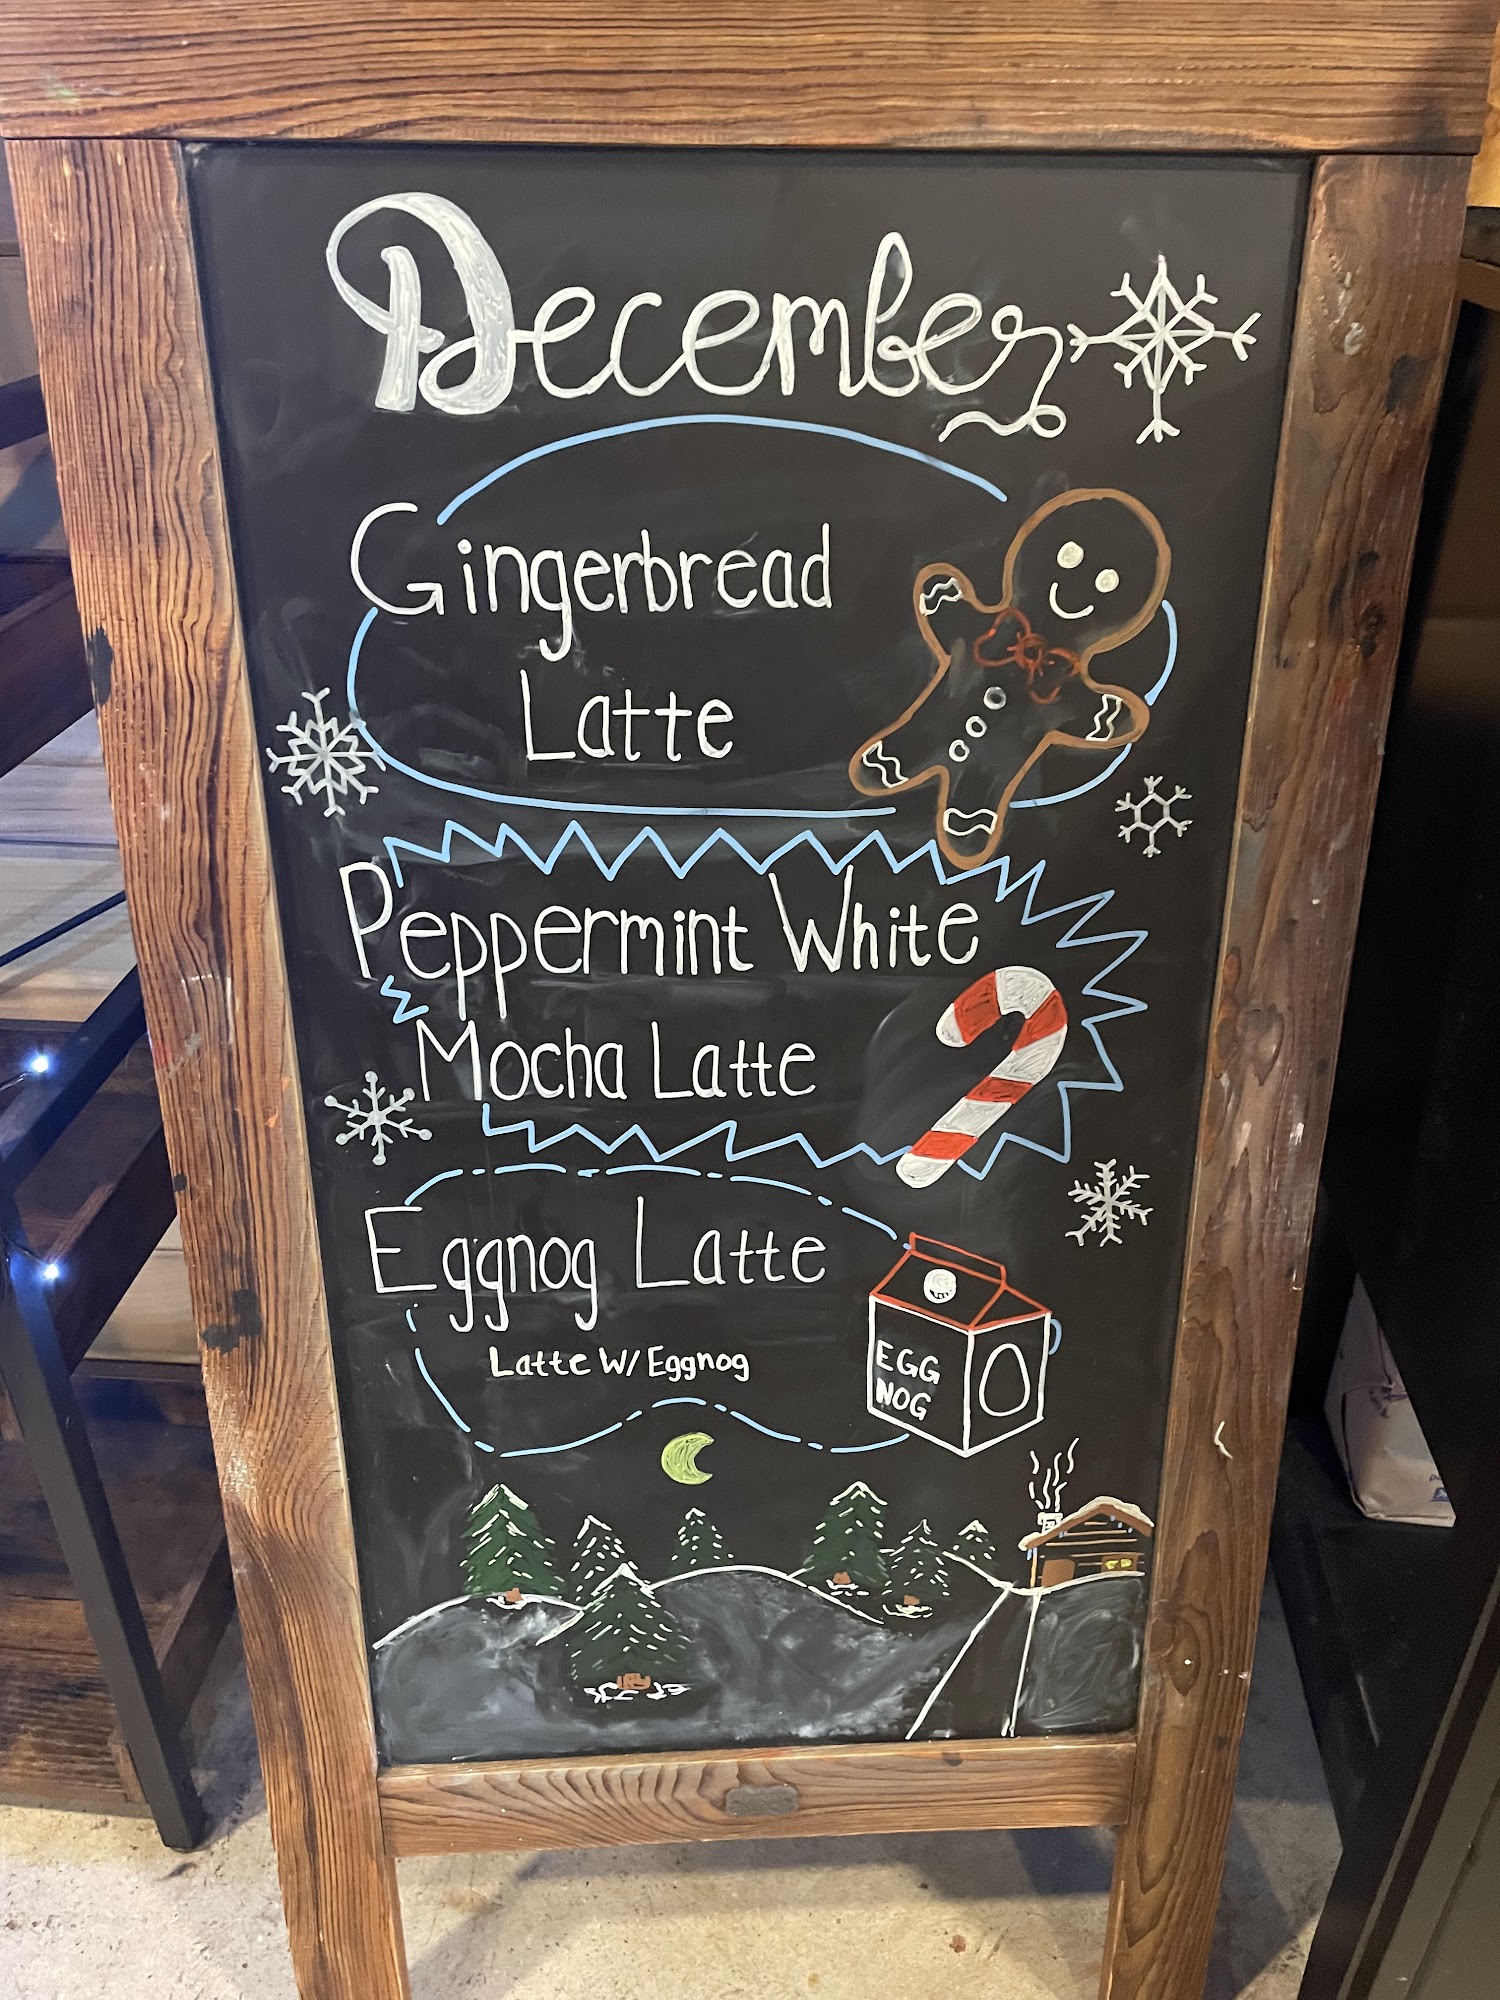 December
Gingerbread
Latte
Peppermint White
Mocha Latte
Eggnog Latte
Latte W/ Eggnog
EGG
NOG